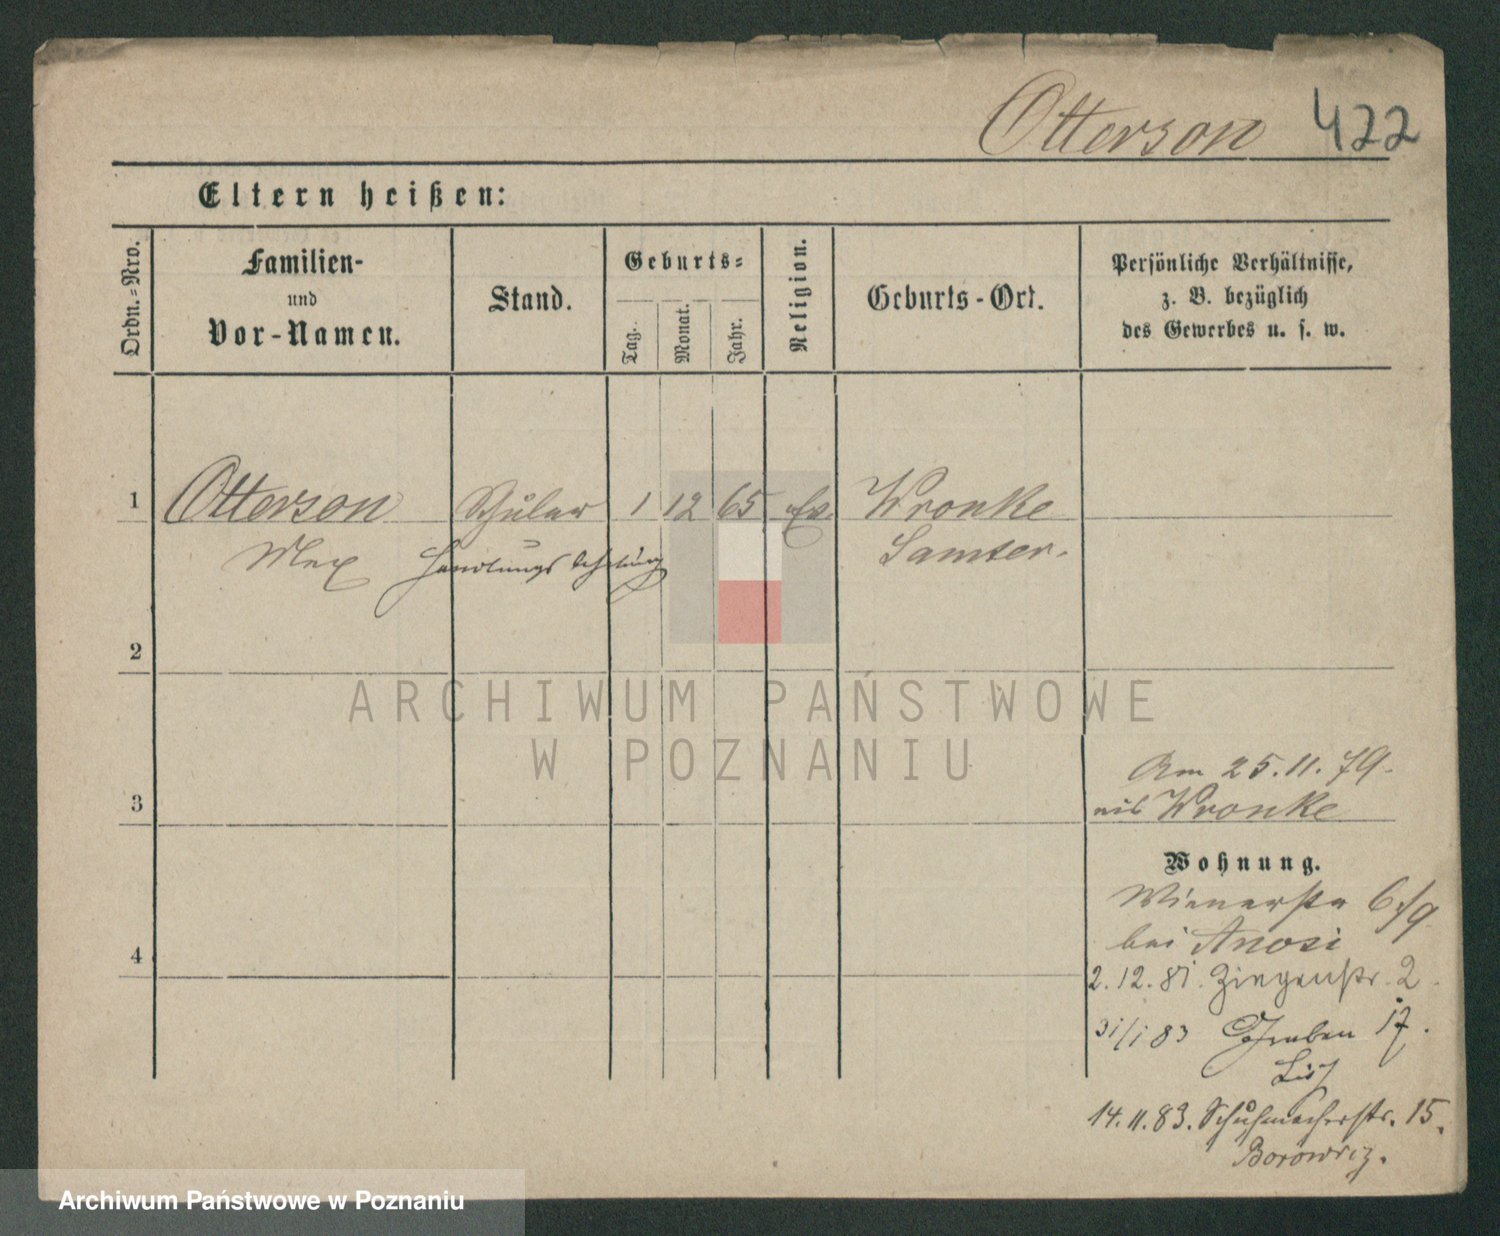 Otterson 422
Eltern heißen:
Ordn.-Nro.
Familien-
und
Vor-Namen.
Stand.
Geburts-
Tag.
Monat.
Jahr.
Religion.
Geburts-Ort.
Persönliche Verhältnisse,
z. B. bezüglich
des Gewerbes u. s. w.
1 Otterson Schüler 1 12 65 Wronke
Max Handlungslehrling Samter.
2
ARCHIWUM PAŃSTWOWE
W POZNANIU
Am 25.11.79.
aus Wronke
3
Wohnung.
Wienerstr 6/9
bei
4
2.12.81. Ziegenstr. 2.
31/1 83 Graben 17.
14.11.83. Schuhmacherstr. 15.
Archiwum Państwowe w Poznaniu